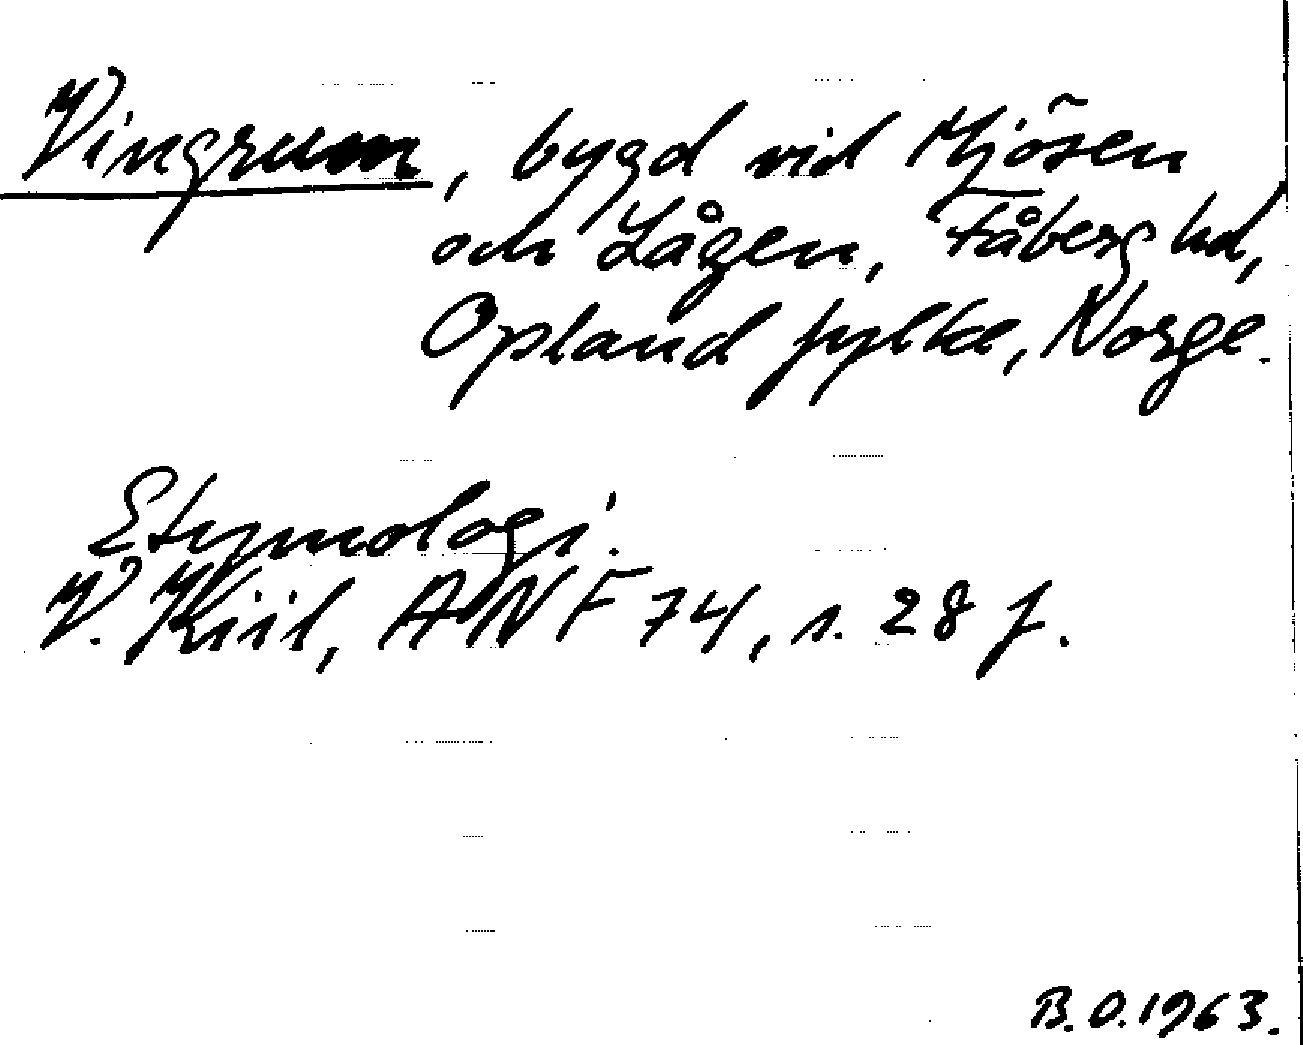 Vingrum, bygd vid Mjösen
och Lågen, Fåberg hd,
Opland fylke, Norge.
Etymologi.
V. Kiil, ANF 74, s. 28 f.
B.O. 1963.